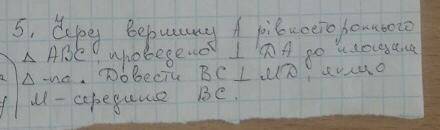 5. Через вершину А рівностороннього
△ ABC проведено ⊥ DA до площини
△-ка. Довести BC ⊥ MD, якщо
M - середина BC.